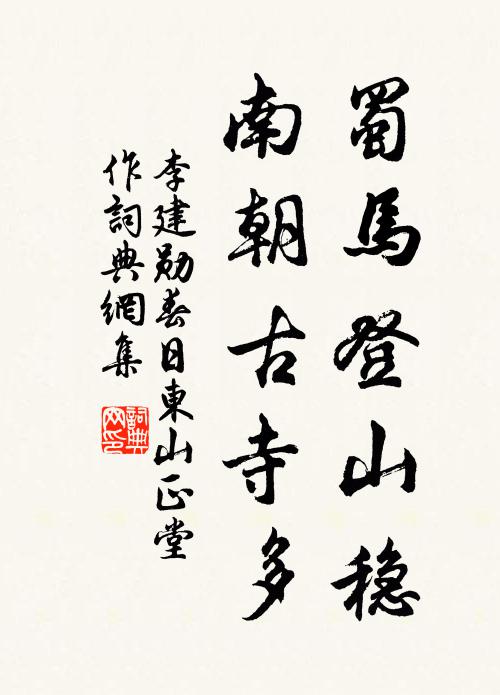 蜀馬登山穩
南朝古寺多
李建勛春日東山正堂
作詞典網集
詞典网印